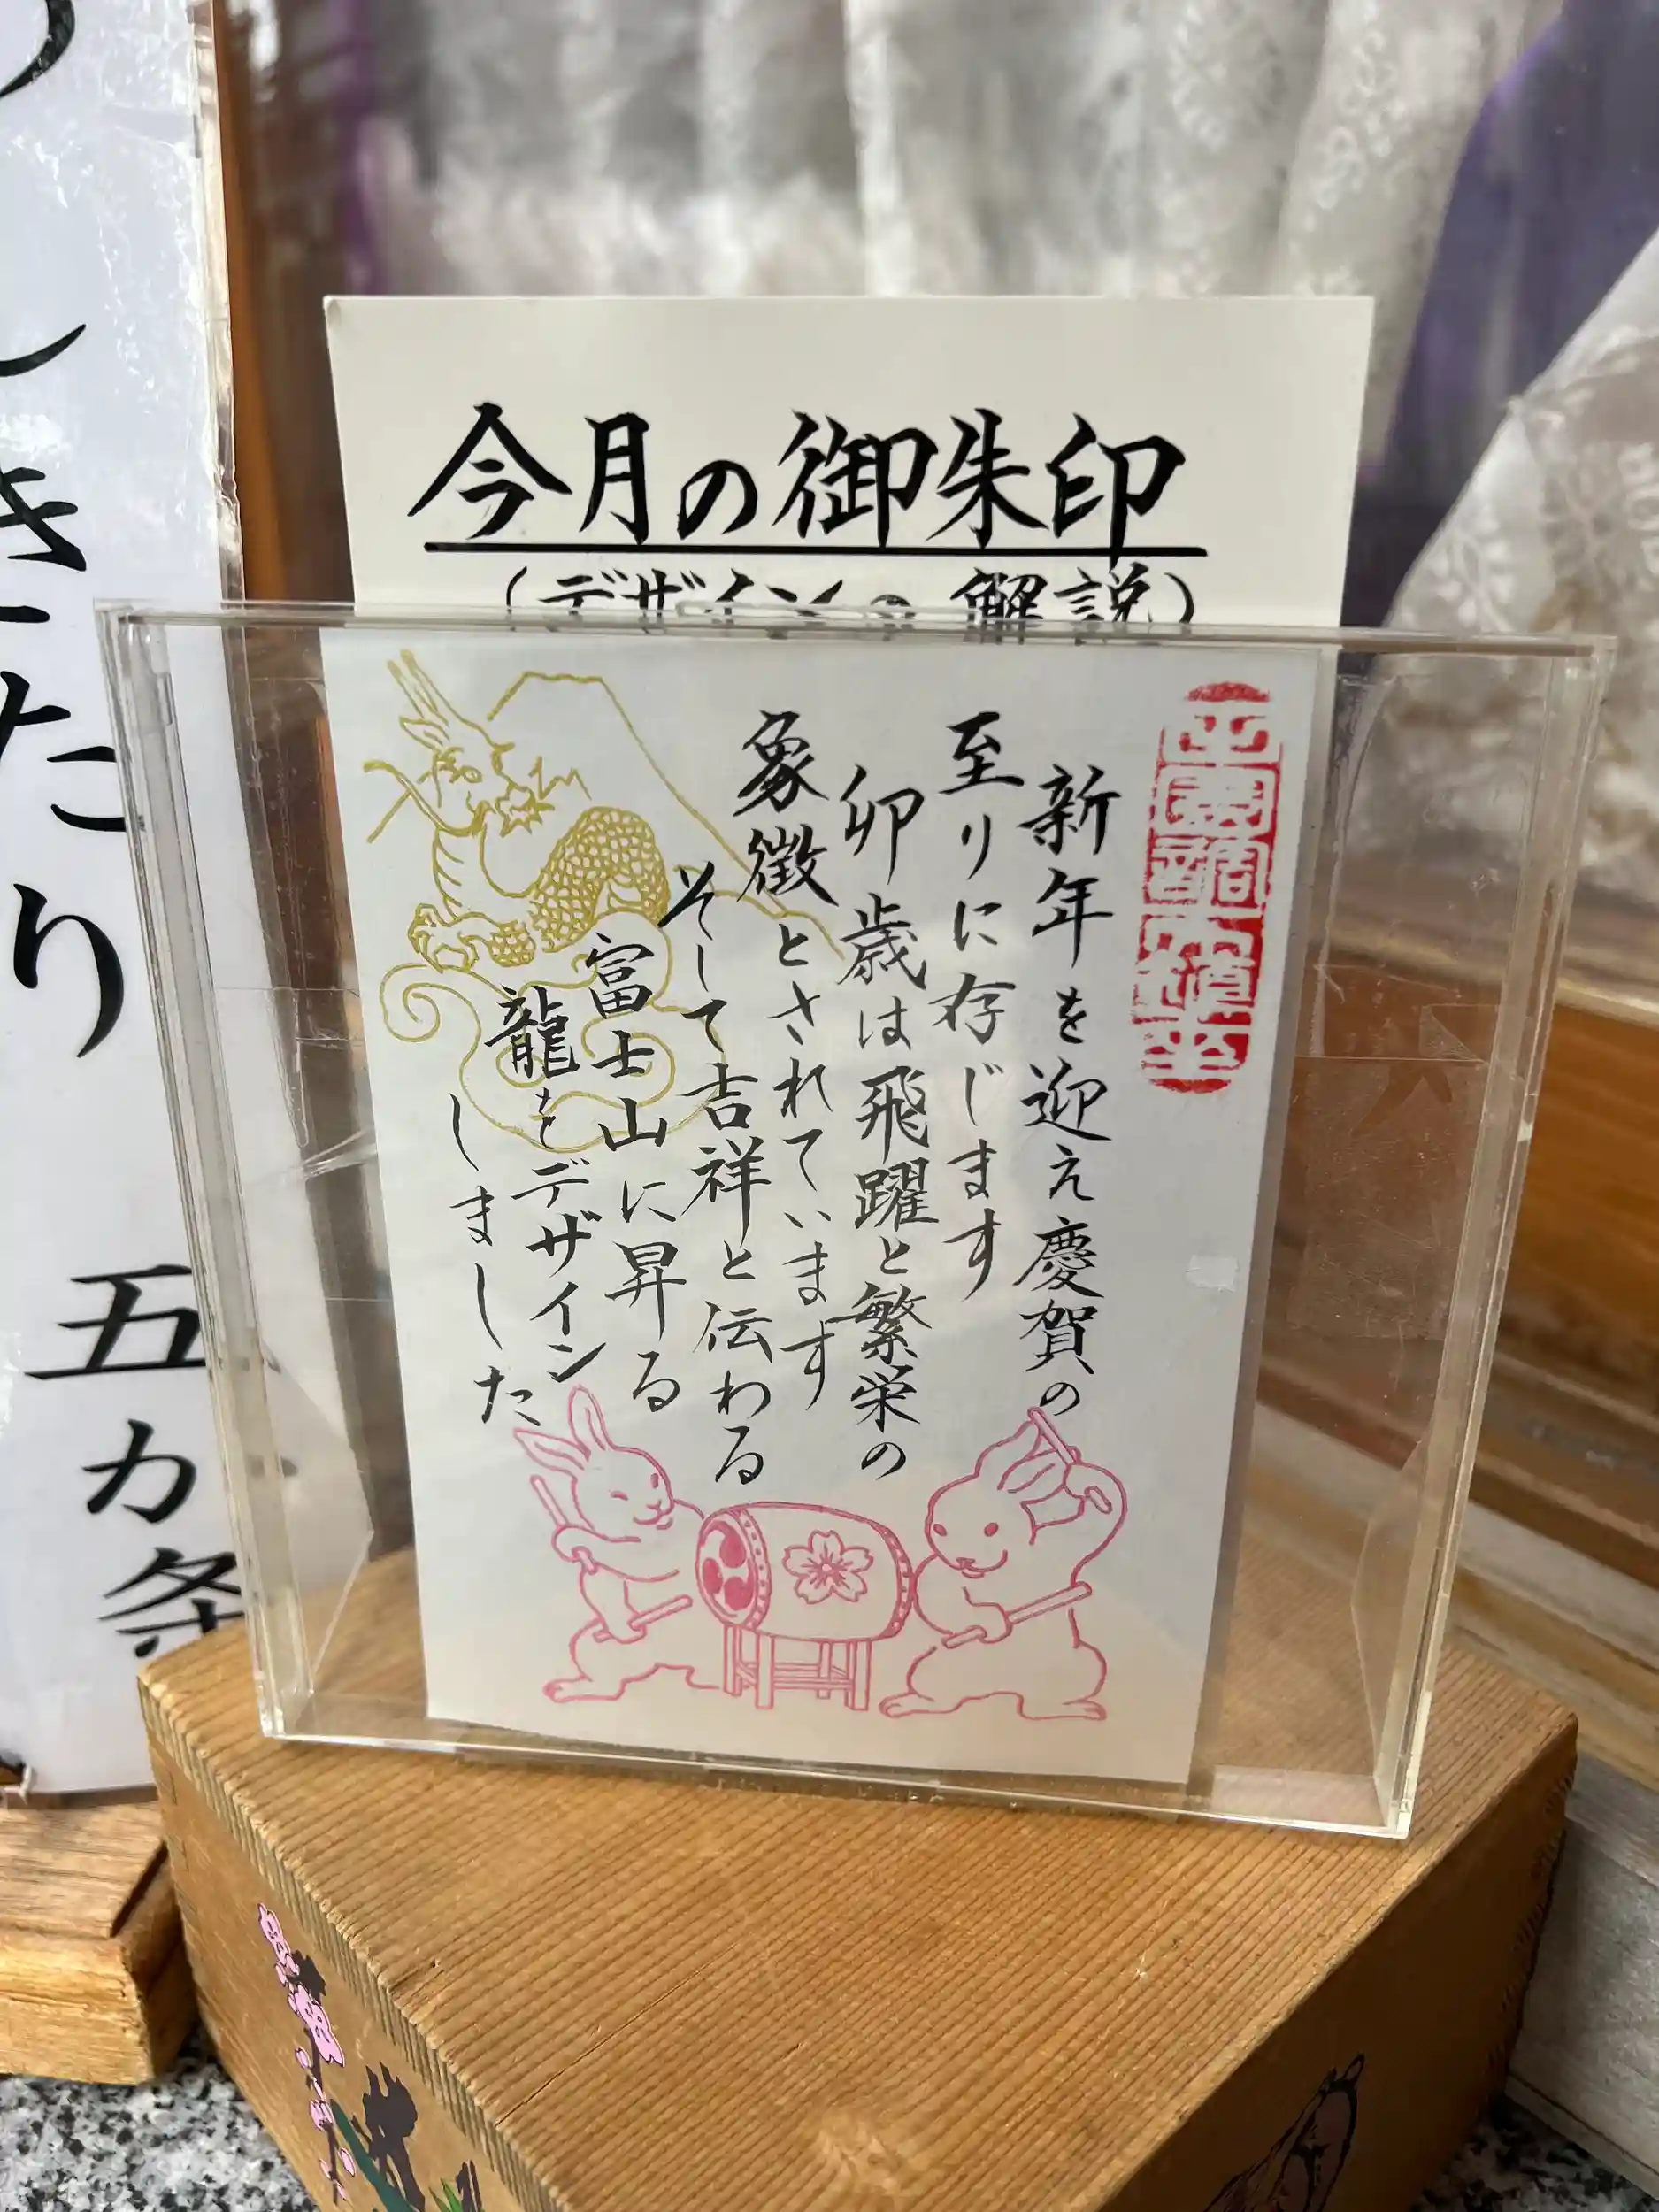 今月の御朱印
(デザインの解説)
新年を迎え慶賀の
至りに存じます
卯歳は飛躍と繁栄の
象徴とされています
そして吉祥と伝わる
富士山に昇る
龍をデザイン
しました
きたり
五カ条